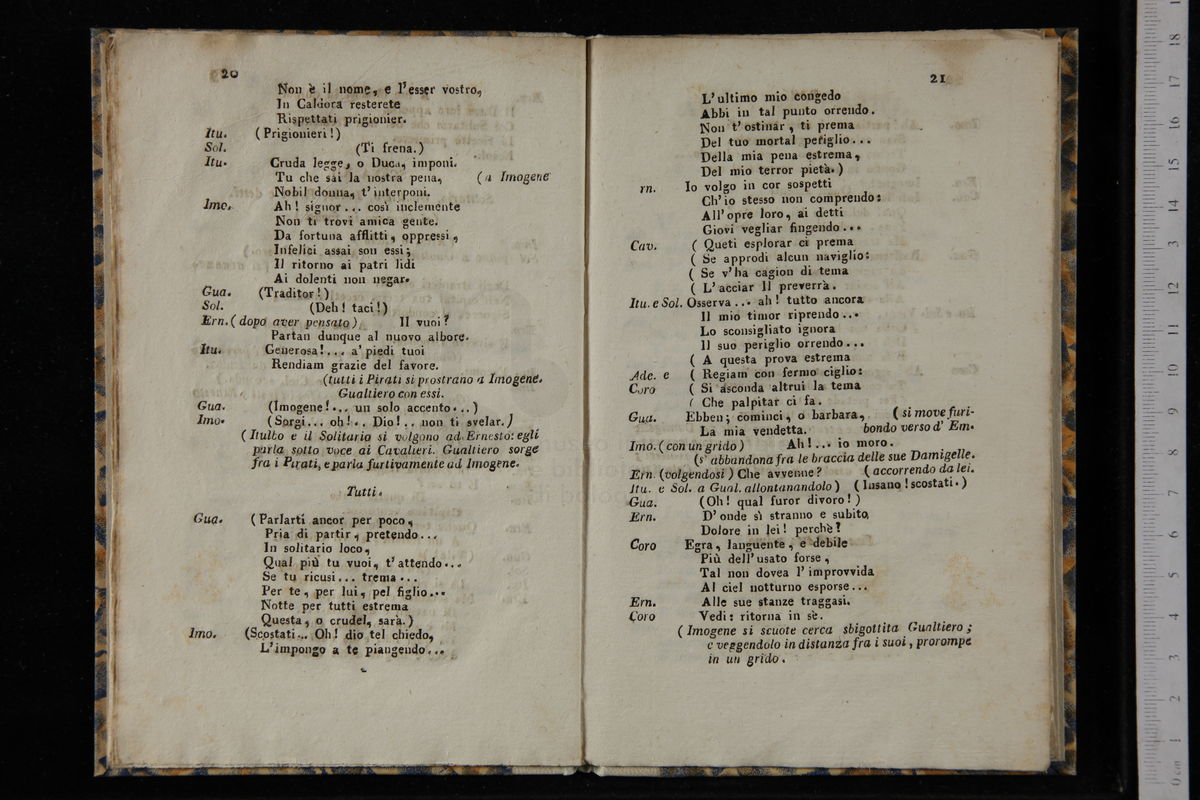 20
Non è il nome, e l'esser vostro,
In Caldora resterete
Rispettati prigionier.
Itu. (Prigionieri!)
Sol. (Ti frena.)
Itu. Cruda legge, o Duca, imponi.
Tu che sai la nostra pena, (a Imogene
Nobil donna, t'interponi.
Imo. Ah! signor... così inclemente
Non ti trovi amica gente.
Da fortuna afflitti, oppressi,
Infelici assai son essi;
Il ritorno ai patri lidi
Ai dolenti non negar.
Gua. (Traditor!)
Sol. (Deh! taci!)
Ern. (dopo aver pensato) Il vuoi?
Partan dunque al nuovo albore.
Itu. Generosa!... a' piedi tuoi
Rendiam grazie del favore.
(tutti i Pirati si prostrano a Imogene.
Gualtiero con essi.
Gua. (Imogene!... un solo accento...)
Imo. (Sorgi... oh!.. Dio!.. non ti svelar.)
(Itulbo e il Solitario si volgono ad Ernesto: egli
parla sotto voce ai Cavalieri. Gualtiero sorge
fra i Pirati, e parla furtivamente ad Imogene.
Tutti.
Gua. (Parlarti ancor per poco,
Pria di partir, pretendo...
In solitario loco,
Qual più tu vuoi, t'attendo...
Se tu ricusi... trema...
Per te, per lui, pel figlio...
Notte per tutti estrema
Questa, o crudel, sarà.)
Imo. (Scostati... Oh! dio tel chiedo,
L'impongo a te piangendo...
21
L'ultimo mio congedo
Abbi in tal punto orrendo.
Non t'ostinar, ti prema
Del tuo mortal periglio...
Della mia pena estrema,
Del mio terror pietà.)
rn. Io volgo in cor sospetti
Ch'io stesso non comprendo:
All'opre loro, ai detti
Giovi vegliar fingendo...
Cav. ( Queti esplorar ci prema
( Se approdi alcun naviglio:
( Se v'ha cagion di tema
( L'acciar Il preverrà.
Itu. e Sol. Osserva... ah! tutto ancora
Il mio timor riprendo...
Lo sconsigliato ignora
Il suo periglio orrendo...
( A questa prova estrema
Ade. e ( Regiam con fermo ciglio:
Coro ( Si asconda altrui la tema
( Che palpitar ci fa.
Gua. Ebben; cominci, o barbara, (si move furi-
La mia vendetta. bondo verso d' Em.
Imo. (con un grido) Ah!... io moro.
(s'abbandona fra le braccia delle sue Damigelle.
Ern. (volgendosi) Che avvenne? (accorrendo da lei.
Itu. e Sol. a Gual. allontanandolo) (Insano! scostati.)
Gua. (Oh! qual furor divoro!)
Ern. D'onde sì stranno e subito,
Dolore in lei! perchè?
Coro Egra, languente, e debile
Più dell'usato forse,
Tal non dovea l'improvvida
Al ciel notturno esporse...
Ern. Alle sue stanze traggasi.
Coro Vedi: ritorna in sè.
(Imogene si scuote cerca sbigottita Gualtiero;
e veggendolo in distanza fra i suoi, prorompe
in un grido.